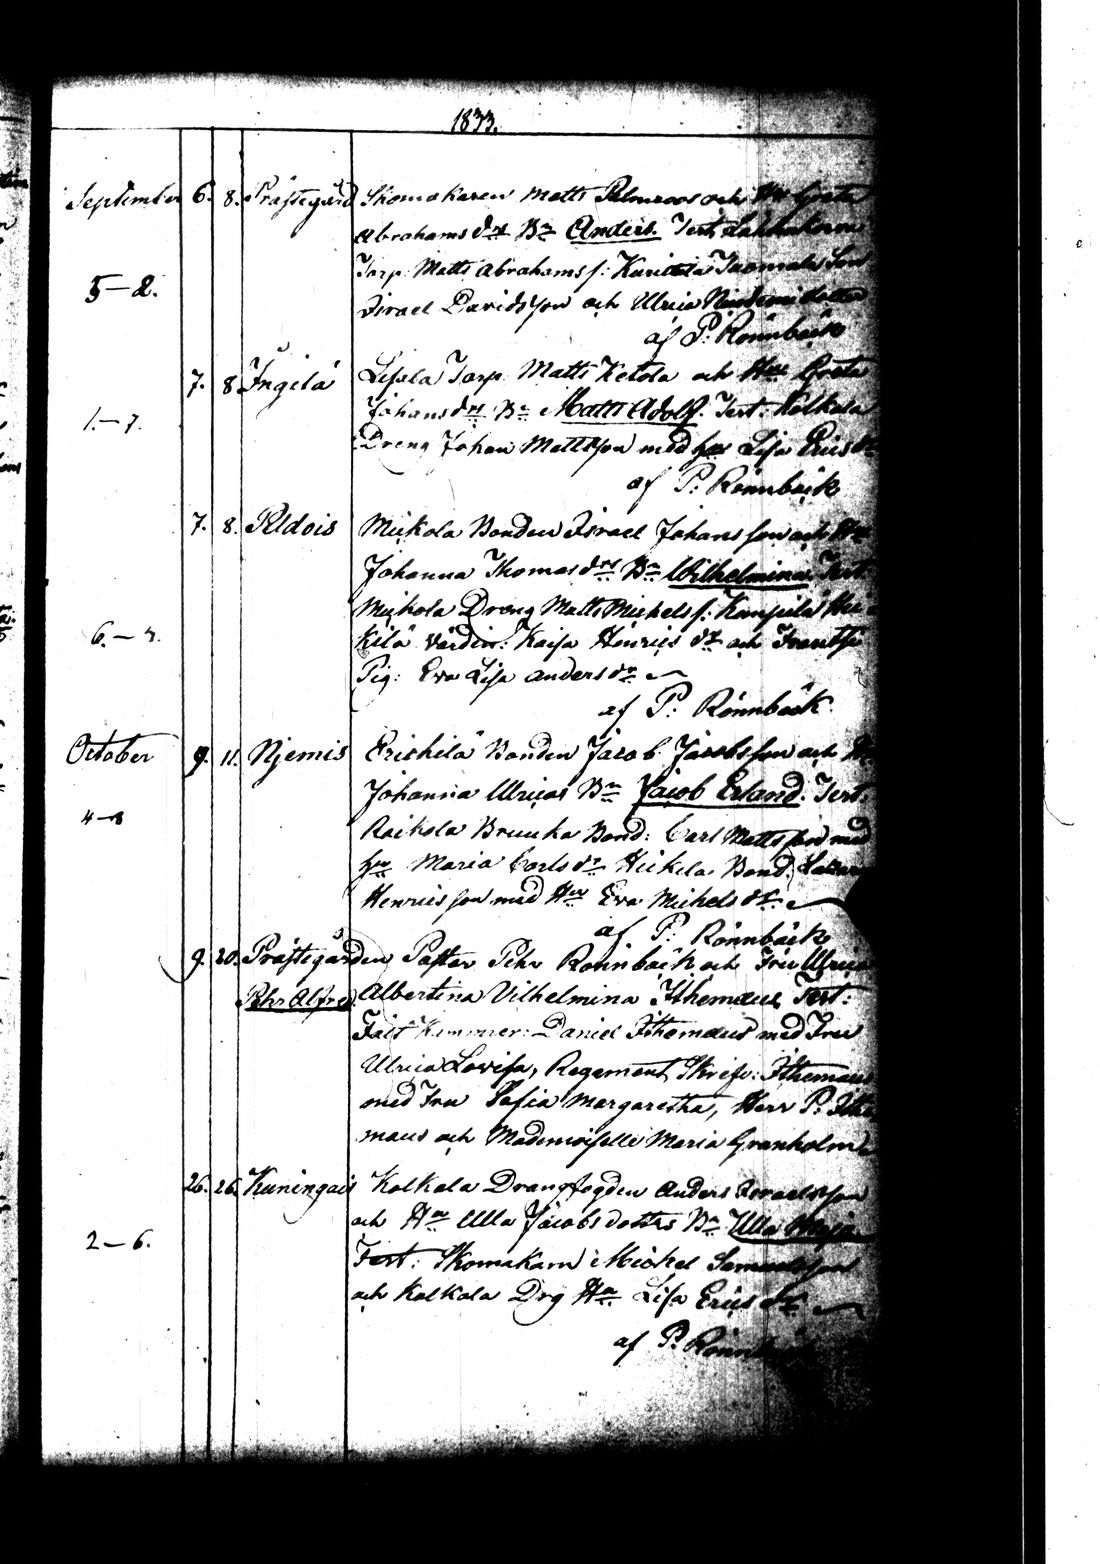 1833.
September 6. 8. Prästegård Skomakaren Matts Palmroos och Hu Greta
Abrahams dr Bn Anders. Test.
Torp. Matts Abrahams s: Tuomala Son
5–2. Israel Davidsson och Ulrica
af P: Rönnbäck
7. 8 Ingilä Torp Matts Ketola och Hu Greta
1.–7. Johansdr Bn Matts Adolf. Test: Kolkala
Dreng Johan Mattsson med hu Lisa Erics dr
af P: Rönnbäck
7. 8. Peldois Mickola Bonden Israel Johansson och Hu
Johanna Thomasdrs Bn Wilhelmina. Test.
Mickola Dreng Matts Michels s:
6.–7. kilä Värdin: Kaisa Henrics dr och
Pig: Eva Lisa Anders dr
af P: Rönnbäck
October 9. 11. Njemis Erickilä Bonden Jacob Jacobsson och
Johanna Ulricas Bn Jacob Erland. Test.
4–8 Raikola Bruuka Bond: Carl Mattsson med
hu Maria Carls dr Heikela Bond:
Henricsson med Hu Eva Michels dr
af P: Rönnbäck
9. 20. Prästegården Pastor Pehr Rönnbäck och Fru Ulrica
Pehr Alfred. Albertina Vilhelmina Ithemaus Test:
Daniel Ithemaus med Fru
Ulrica Lovisa, Regement Skrifv: Ithemaus
med Fru Sofia Margaretha, Herr P. Ithe
maus och Mademoiselle Maria Granholm
26. 26. Kuningais Kolkala Drangfogden Anders Israelsson
och Hu Ulla Jacobs dotters Bn Ulla Maja
2–6. Test: Skomakarn Mickel Samuelsson
och Kolkala Drg Hu Lisa Erics dr
af P: Rönnbäck